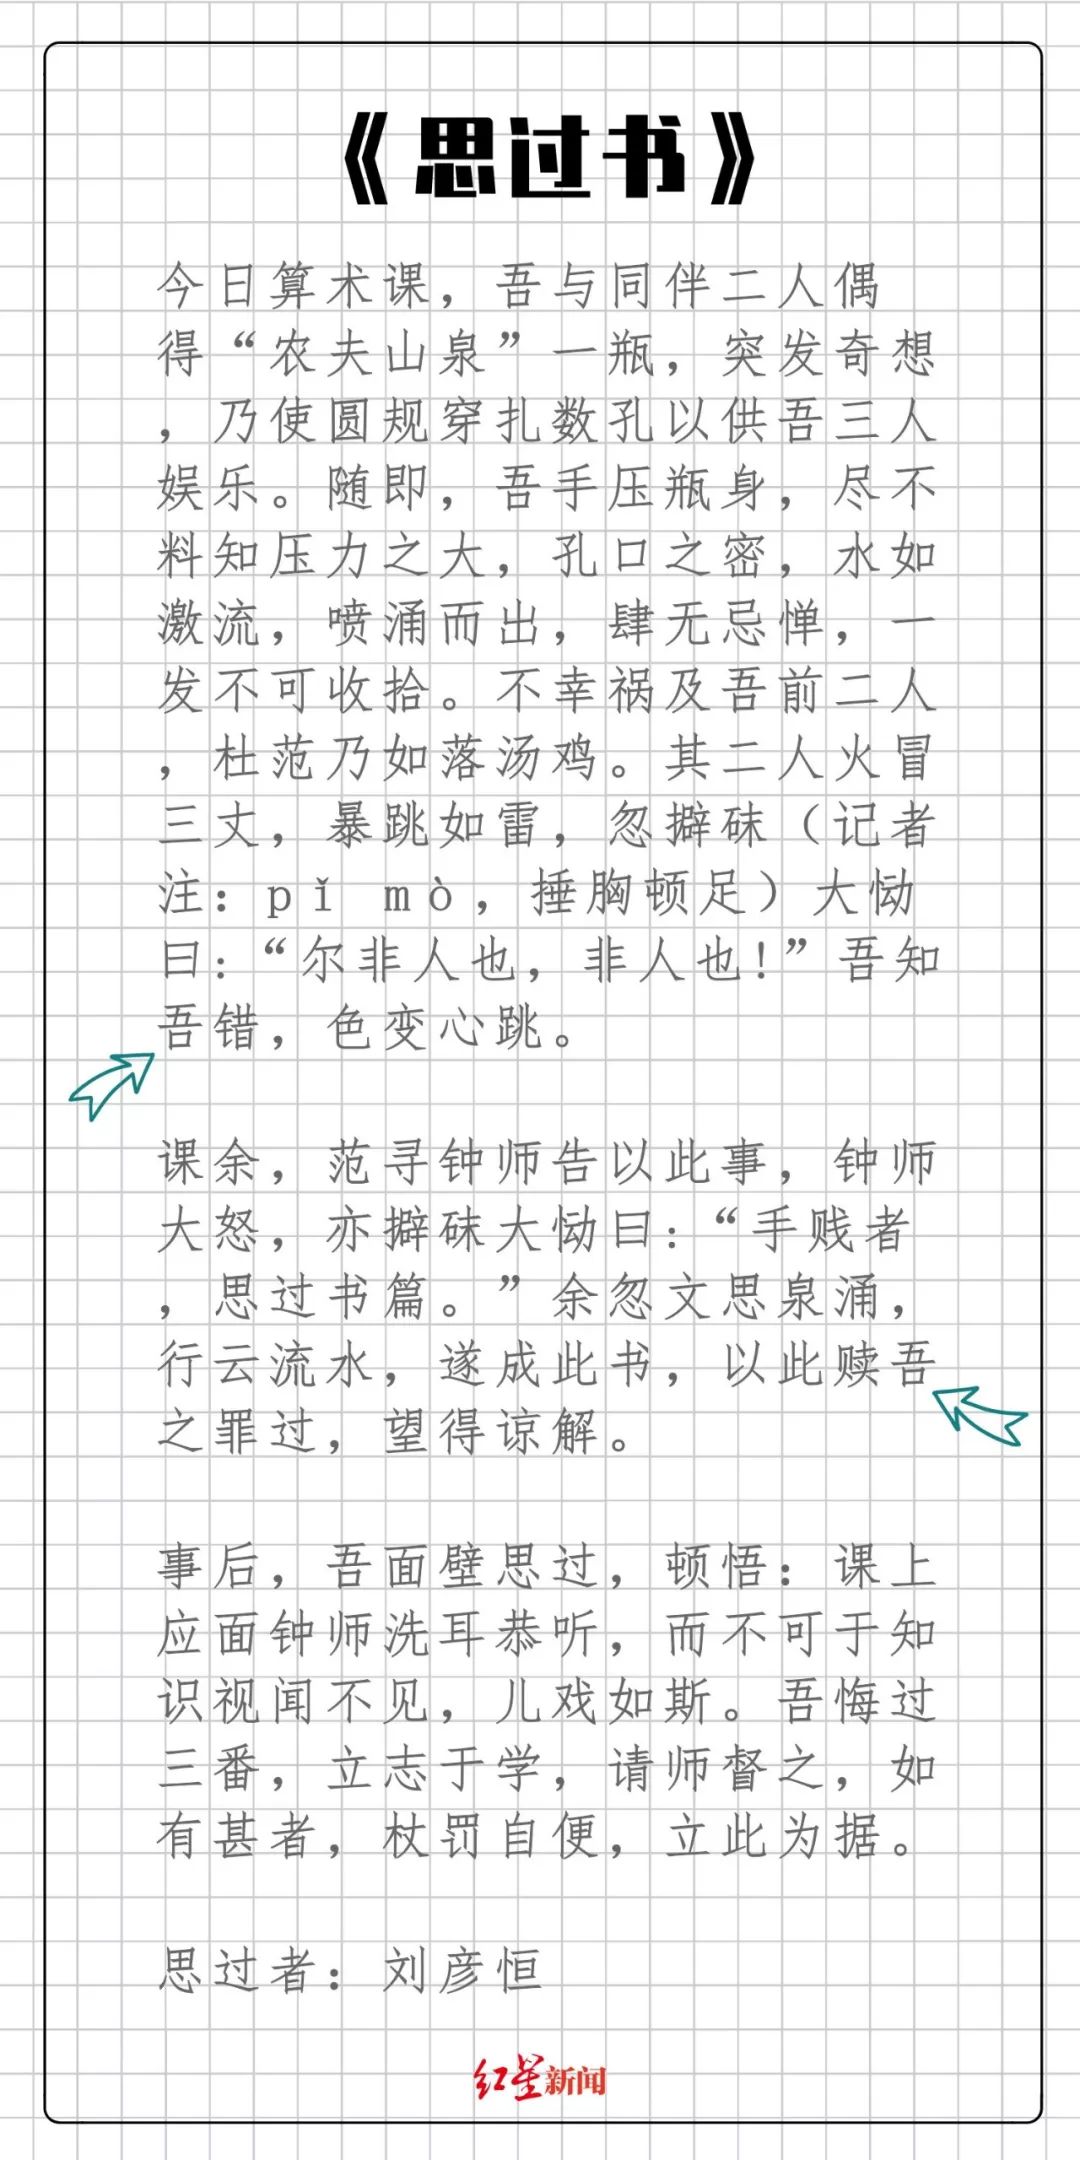 《思过书》
今日算术课，吾与同伴二人偶
得“农夫山泉”一瓶，突发奇想
，乃使圆规穿扎数孔以供吾三人
娱乐。随即，吾手压瓶身，尽不
料知压力之大，孔口之密，水如
激流，喷涌而出，肆无忌惮，一
发不可收拾。不幸祸及吾前二人
，杜范乃如落汤鸡。其二人火冒
三丈，暴跳如雷，忽擗砞（记者
注：pǐ mò，捶胸顿足）大恸
曰：“尔非人也，非人也！”吾知
吾错，色变心跳。
课余，范寻钟师告以此事，钟师
大怒，亦擗砞大恸曰：“手贱者
，思过书篇。”余忽文思泉涌，
行云流水，遂成此书，以此赎吾
之罪过，望得谅解。
事后，吾面壁思过，顿悟：课上
应面钟师洗耳恭听，而不可于知
识视闻不见，儿戏如斯。吾悔过
三番，立志于学，请师督之，如
有甚者，杖罚自便，立此为据。
思过者：刘彦恒
红星新闻